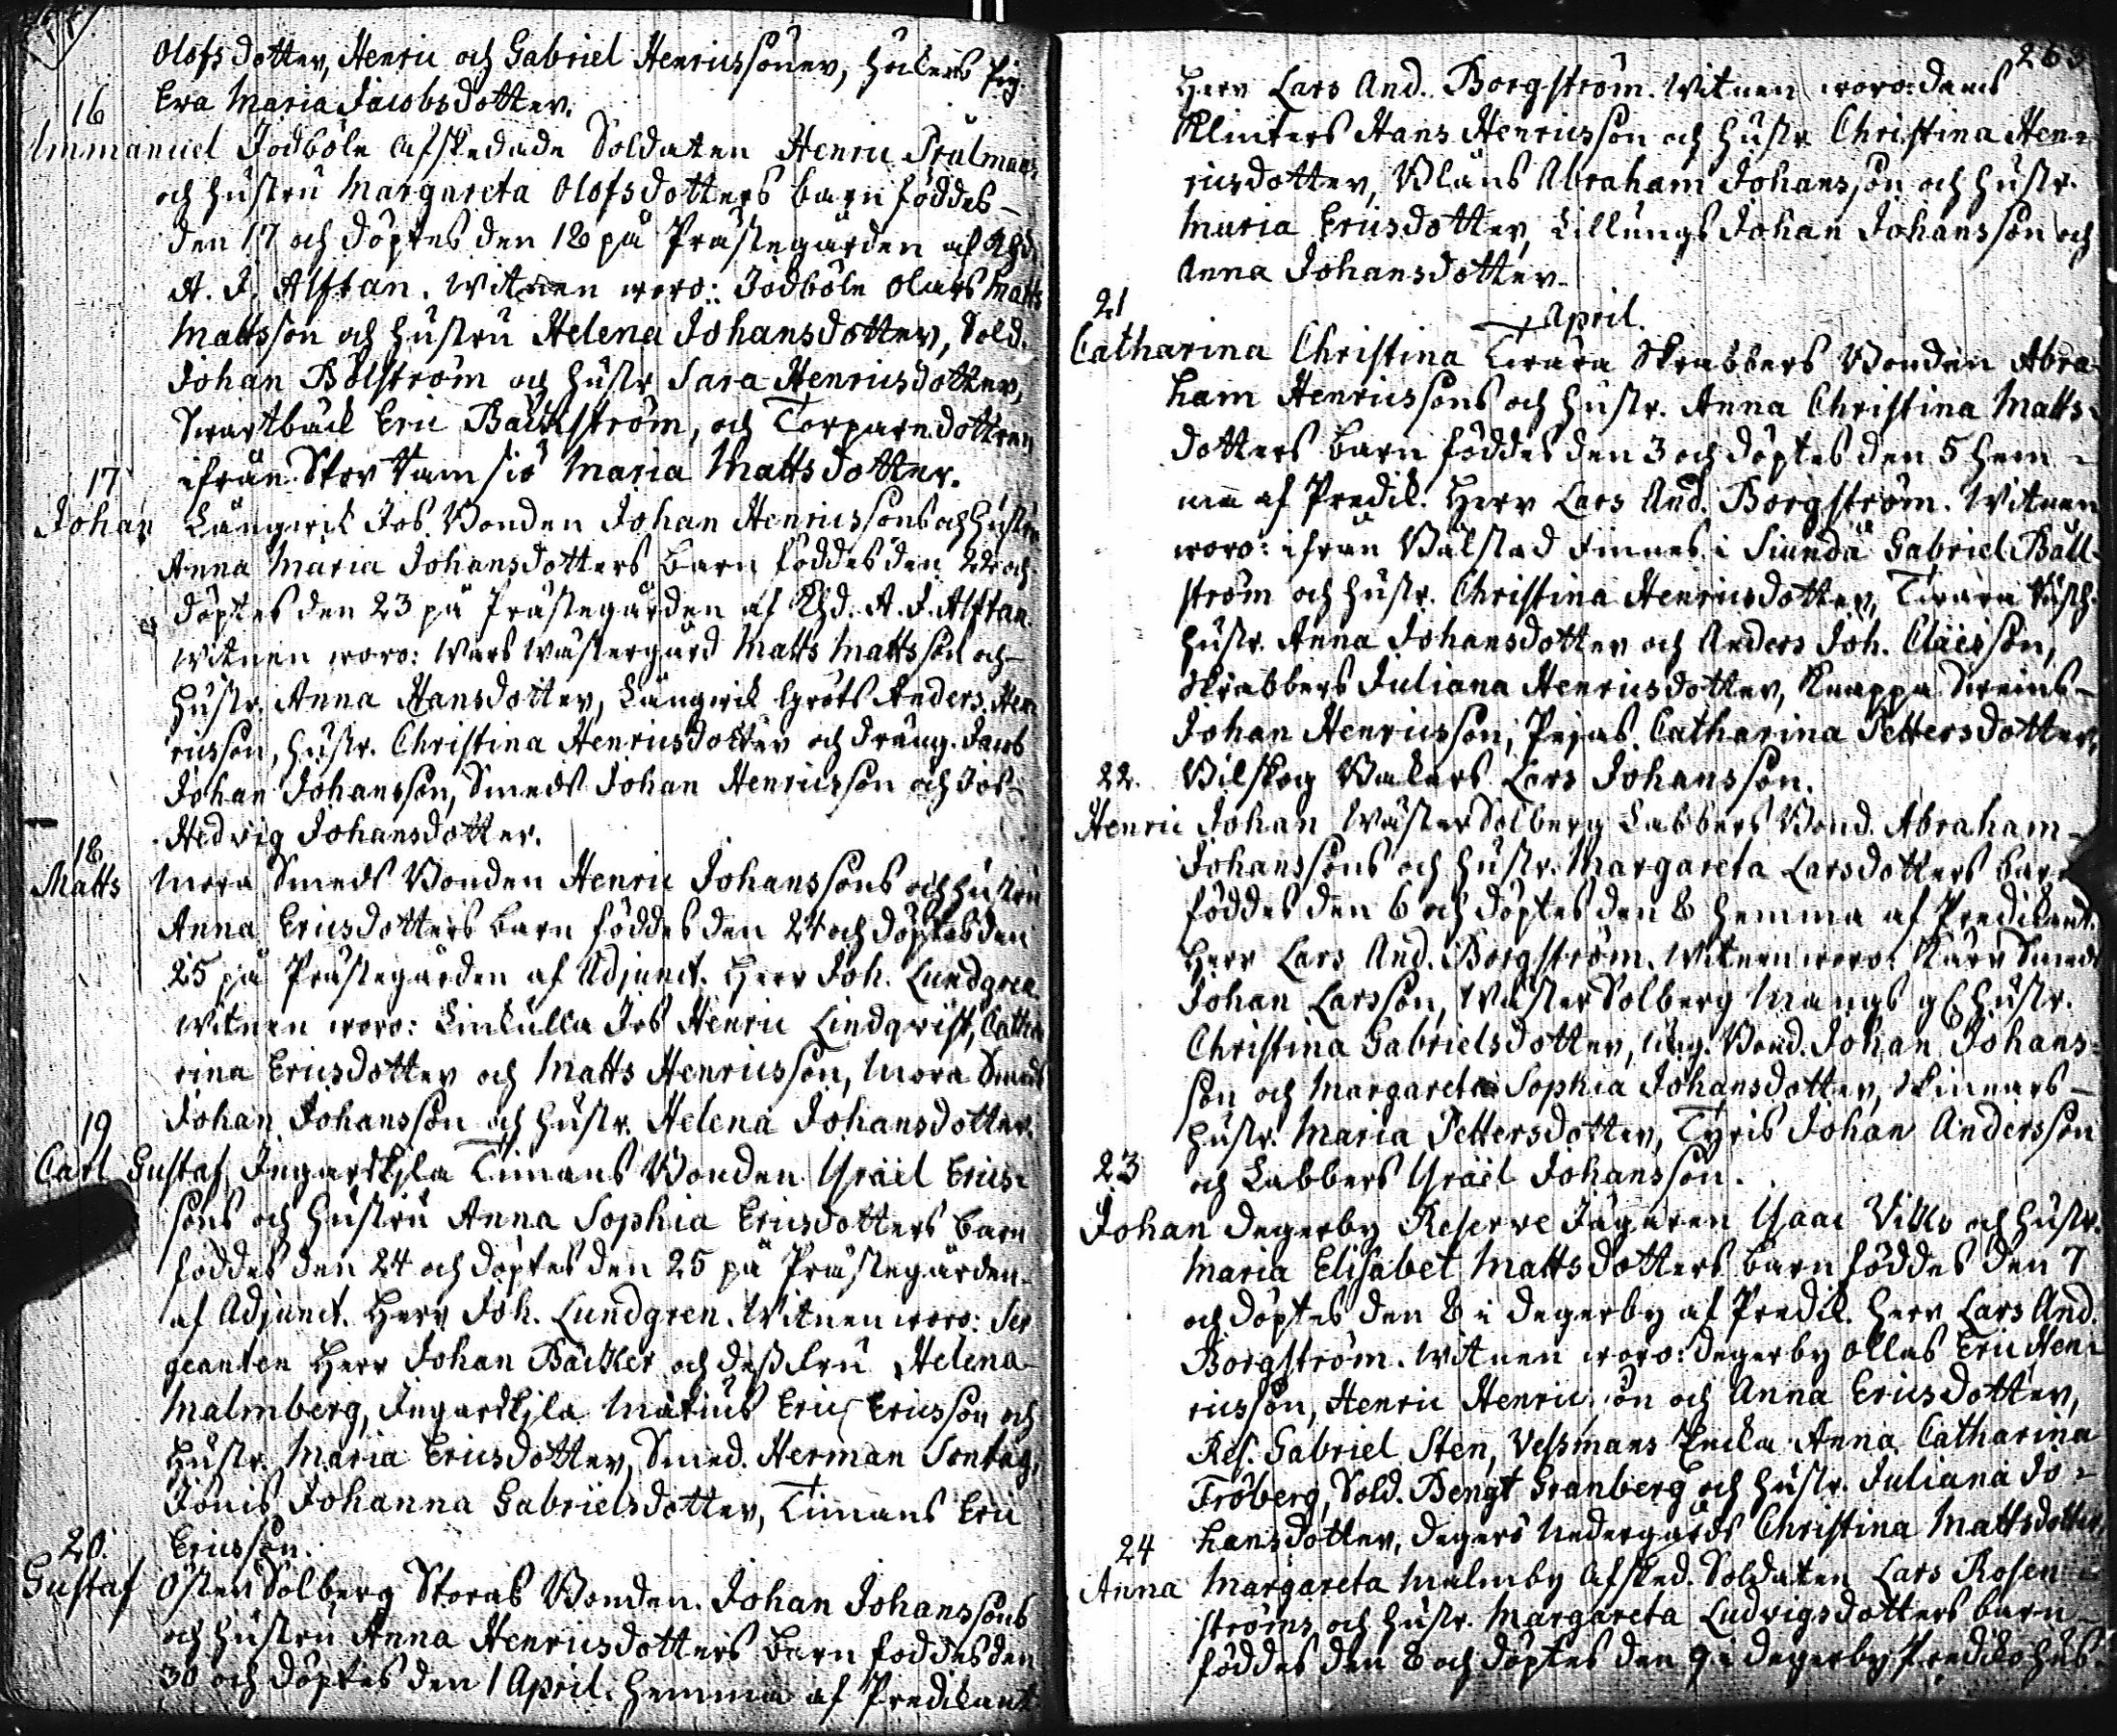 Olofsdotter, Henric och Gabriel Henricssöner, pig.
16 Eva Maria Jacobsdotter.
Immanuel Jodböle Afskedade Soldaten Henric Stålmans
och hustru Margareta Olofsdotters barn föddes
den 17 och döptes den 18 på Prästegården af Khd.
A. J. Alftan. Witnen woro: Jodböle Olars Matts
Mattsson och hustru Helena Johansdotter, Sold.
Johan Bölström och hustr. Sara Henricsdotter,
Swartbäck Eric Bäckström, och Torparedottren
ifrån Stor Ramsiö Maria Mattsdotter.
17
Johan Långwik Jos Bonden Johan Henricssons och hustru
Anna Maria Johansdotters barn föddes den 22 och
döptes den 23 på Prästegården af Khd. A. J. Alftan.
Witnen woro: Wars Wästergård Matts Mattsson och
hustr. Anna Hansdotter, Långwik Gröts Anders Hen
ricsson, hustr. Christina Henricsdotter och dräng. Jacob
Johan Johansson, Smeds Johan Henricsson och Jos
Hedvig Johansdotter.
18
Matts Mora Smeds Bonden Henric Johanssons och hustru
Anna Ericsdotters barn föddes den 24 och döptes den
25 på Prästegården af Adjunct. Herr Joh. Lundgren.
Witnen woro: Linkulla Jos Henric Lindqvist, Catha
rina Ericsdotter och Matts Henricsson, Mora Smeds
Johan Johansson och hustr. Helena Johansdotter.
19
Carl Gustaf, Ingarskila Timans Bonden Israël Erics
sons och hustru Anna Sophia Ericsdotters barn
föddes den 24 och döptes den 25 på Prästegården
af Adjunct. Herr Joh. Lundgren. Witnen woro: Ser
geanten Herr Johan Bäcker och dess fru Helena
Malmberg, Ingarskila Matius Eric Ericsson och
hustr. Maria Ericsdotter, Smed. Herman Sontag,
Jönis Johanna Gabrielsdotter, Timans Eric
20. Ericsson.
Gustaf Öster Solberg Storas Bonden Johan Johanssons
och hustru Anna Henricsdotters barn föddes den
30 och döptes den 1 April hemma af Predikant
265
Herr Lars And. Borgström. Witnen woro:
Klinkers Hans Henricsson och hustr. Christina Hen
ricsdotter, Blåns Abraham Johansson och hustr.
Maria Ericsdotter, Lillungs Johan Johansson och
Anna Johansdotter.
21
April.
Catharina Christina Tivära Skrabbers Bonden Abra
ham Henricssons och hustr. Anna Christina Matts
dotters barn föddes den 3 och döptes den 5 hem
ma af Predik. Herr Lars And. Borgström. Witnen
woro: ifrån Bålstad Finnes i Siundå Gabriel Båll
ström och hustr. Christina Henricsdotter, Tivära
hustr. Anna Johansdotter och Anders Joh. Claësson,
Skrabbers Juliana Henricsdotter, Knappa Sweins
Johan Henricsson, Pejas Catharina Pettersdotter,
22. Bilskog Bakars Lars Johansson.
Henric Johan Wäster Solberg Labbers Bond. Abraham
Johanssons och hustr. Margareta Larsdotters barn
föddes den 6 och döptes den 8 hemma af Predikant.
Herr Lars And. Borgström. Witnen woro: Kärr Smeds
Johan Larsson, Wäster Solberg Mangs hustr.
Christina Gabrielsdotter, Ung. Bond. Johan Johans
son och Margareta Sophia Johansdotter, Skinnars
hustr. Maria Pettersdotter, Tyris Johan Andersson
23 och Labbers Israël Johansson.
Johan Degerby Reserve Jägaren Isaac Villo och hustr.
Maria Elisabet Mattsdotters barn föddes den 7
och döptes den 8 i Degerby af Predik. Herr Lars And.
Borgström. Witnen woro: Degerby Ollas Eric Hen
ricsson, Henric Henricsson och Anna Ericsdotter,
Res. Gabriel Sten, Vessmans Enka Anna Catharina
Fröberg, Sold. Bengt Granberg och hustr. Juliana Jo
hansdotter, Degers Nedergårds Christina Mattsdotter.
24
Anna Margareta Malmby Afsked. Soldaten Lars Rosen
ströms och hustr. Margareta Ludvigsdotters barn
föddes den 8 och döptes den 9 i Degerby Prediko hus